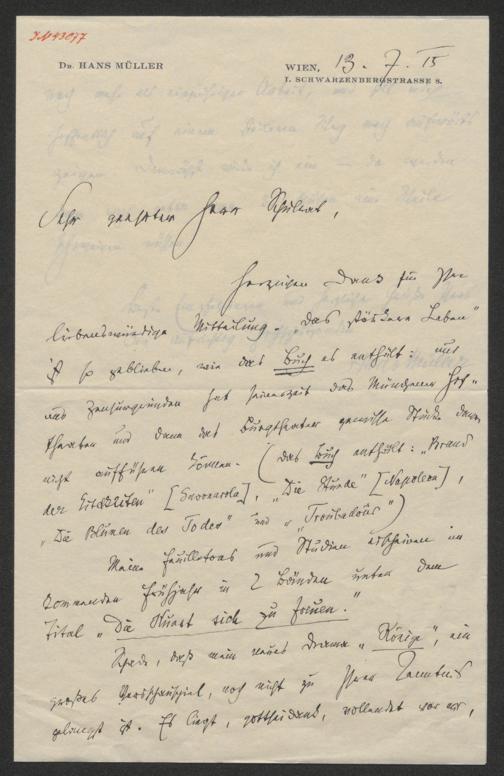 JN43077
DR. HANS MÜLLER
WIEN, 13. 7. 15
I. SCHWARZENBERGSTRASSE 8.
Sehr geehrter Herr
herzlichen Dank für Ihre
liebenswürdige Mitteilung. „Das stärkere Leben"
ist so geblieben, wie das Buch es enthält: nur
aus Zensurgründen hat seinerzeit das Münchener Hof-
theater und dann das Burgtheater gewisse Stücke davon
nicht aufführen können. (Das Buch enthält: „Brand
der Eitelkeiten" [Savonarola], „Die Stunde" [Napoleon],
„Die Blumen des Todes" und „Troubadour")
Meine Feuilletons und Studien erscheinen im
kommenden Frühjahr in 2 Bänden unter dem
Titel „Die Kunst sich zu freuen."
Schade, daß mein neues Drama „Könige", ein
großes Versschauspiel, noch nicht zu Ihrer Kenntnis
gelangt ist. Es liegt, gottseidank, vollendet vor mir,